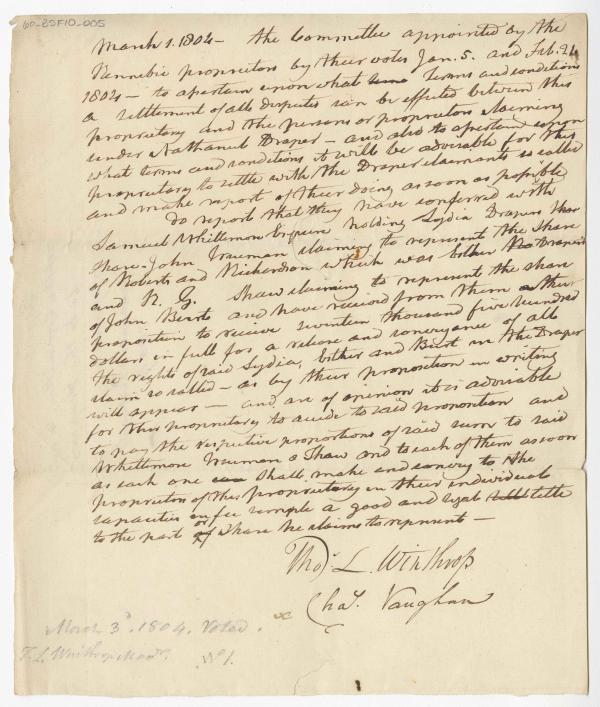 60-25F10-005
March 1. 1804 — The Committee appointed by the
Kennebec proprietors by their votes Jan. 5. and Feb. 24
1804 — to ascertain upon what terms and conditions
a settlement of all disputes can be effected between this
proprietary and the persons or proprietors claiming
under Nathaniel Draper — and also to ascertain upon
what terms and conditions it will be advisable for this
proprietary to settle with the Draper claimants so called
and make report of their doing as soon as possible
Do report that they have conferred with
Samuel Whittemore Esquire holding Lydia Drapers
share — John Trueman claiming to represent the share
of Roberts and Richardson which was Esther Drapers
and R. G. Shaw claiming to represent the share
of John Birt and have received from them a
proposition to receive seventeen thousand five hundred
dollars in full for a release and conveyance of all
the rights of said Lydia, Esther and Birt in the Draper
claim so called — as by their proposition in writing
will appear — and are of opinion it is advisable
for this proprietary to accede to said proposition and
to pay the respective proportions of said sum to said
Whittemore Trueman & Shaw and to each of them as soon
as each one shall make and convey to the
proprietors of this proprietary in their individual
capacities in fee simple a good and legal title
to the part or share he claims to represent —
Tho.s L. Winthrop
Cha.s Vaughan
March 3.d 1804. Voted.
T. L. Winthrop Mod.r
No 1.